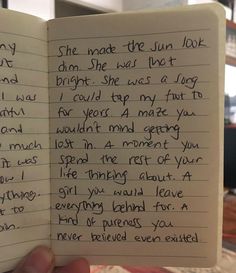 ny
and
I was
and
much
it was
ything.
t to
She made the sun look
dim. She was that
bright. She was a song
I could tap my foot to
for years. A maze you
wouldn't mind getting
lost in. A moment you
spend the rest of your
life thinking about. A
girl you would leave
everything behind for. A
kind of pureness you
never believed even existed.